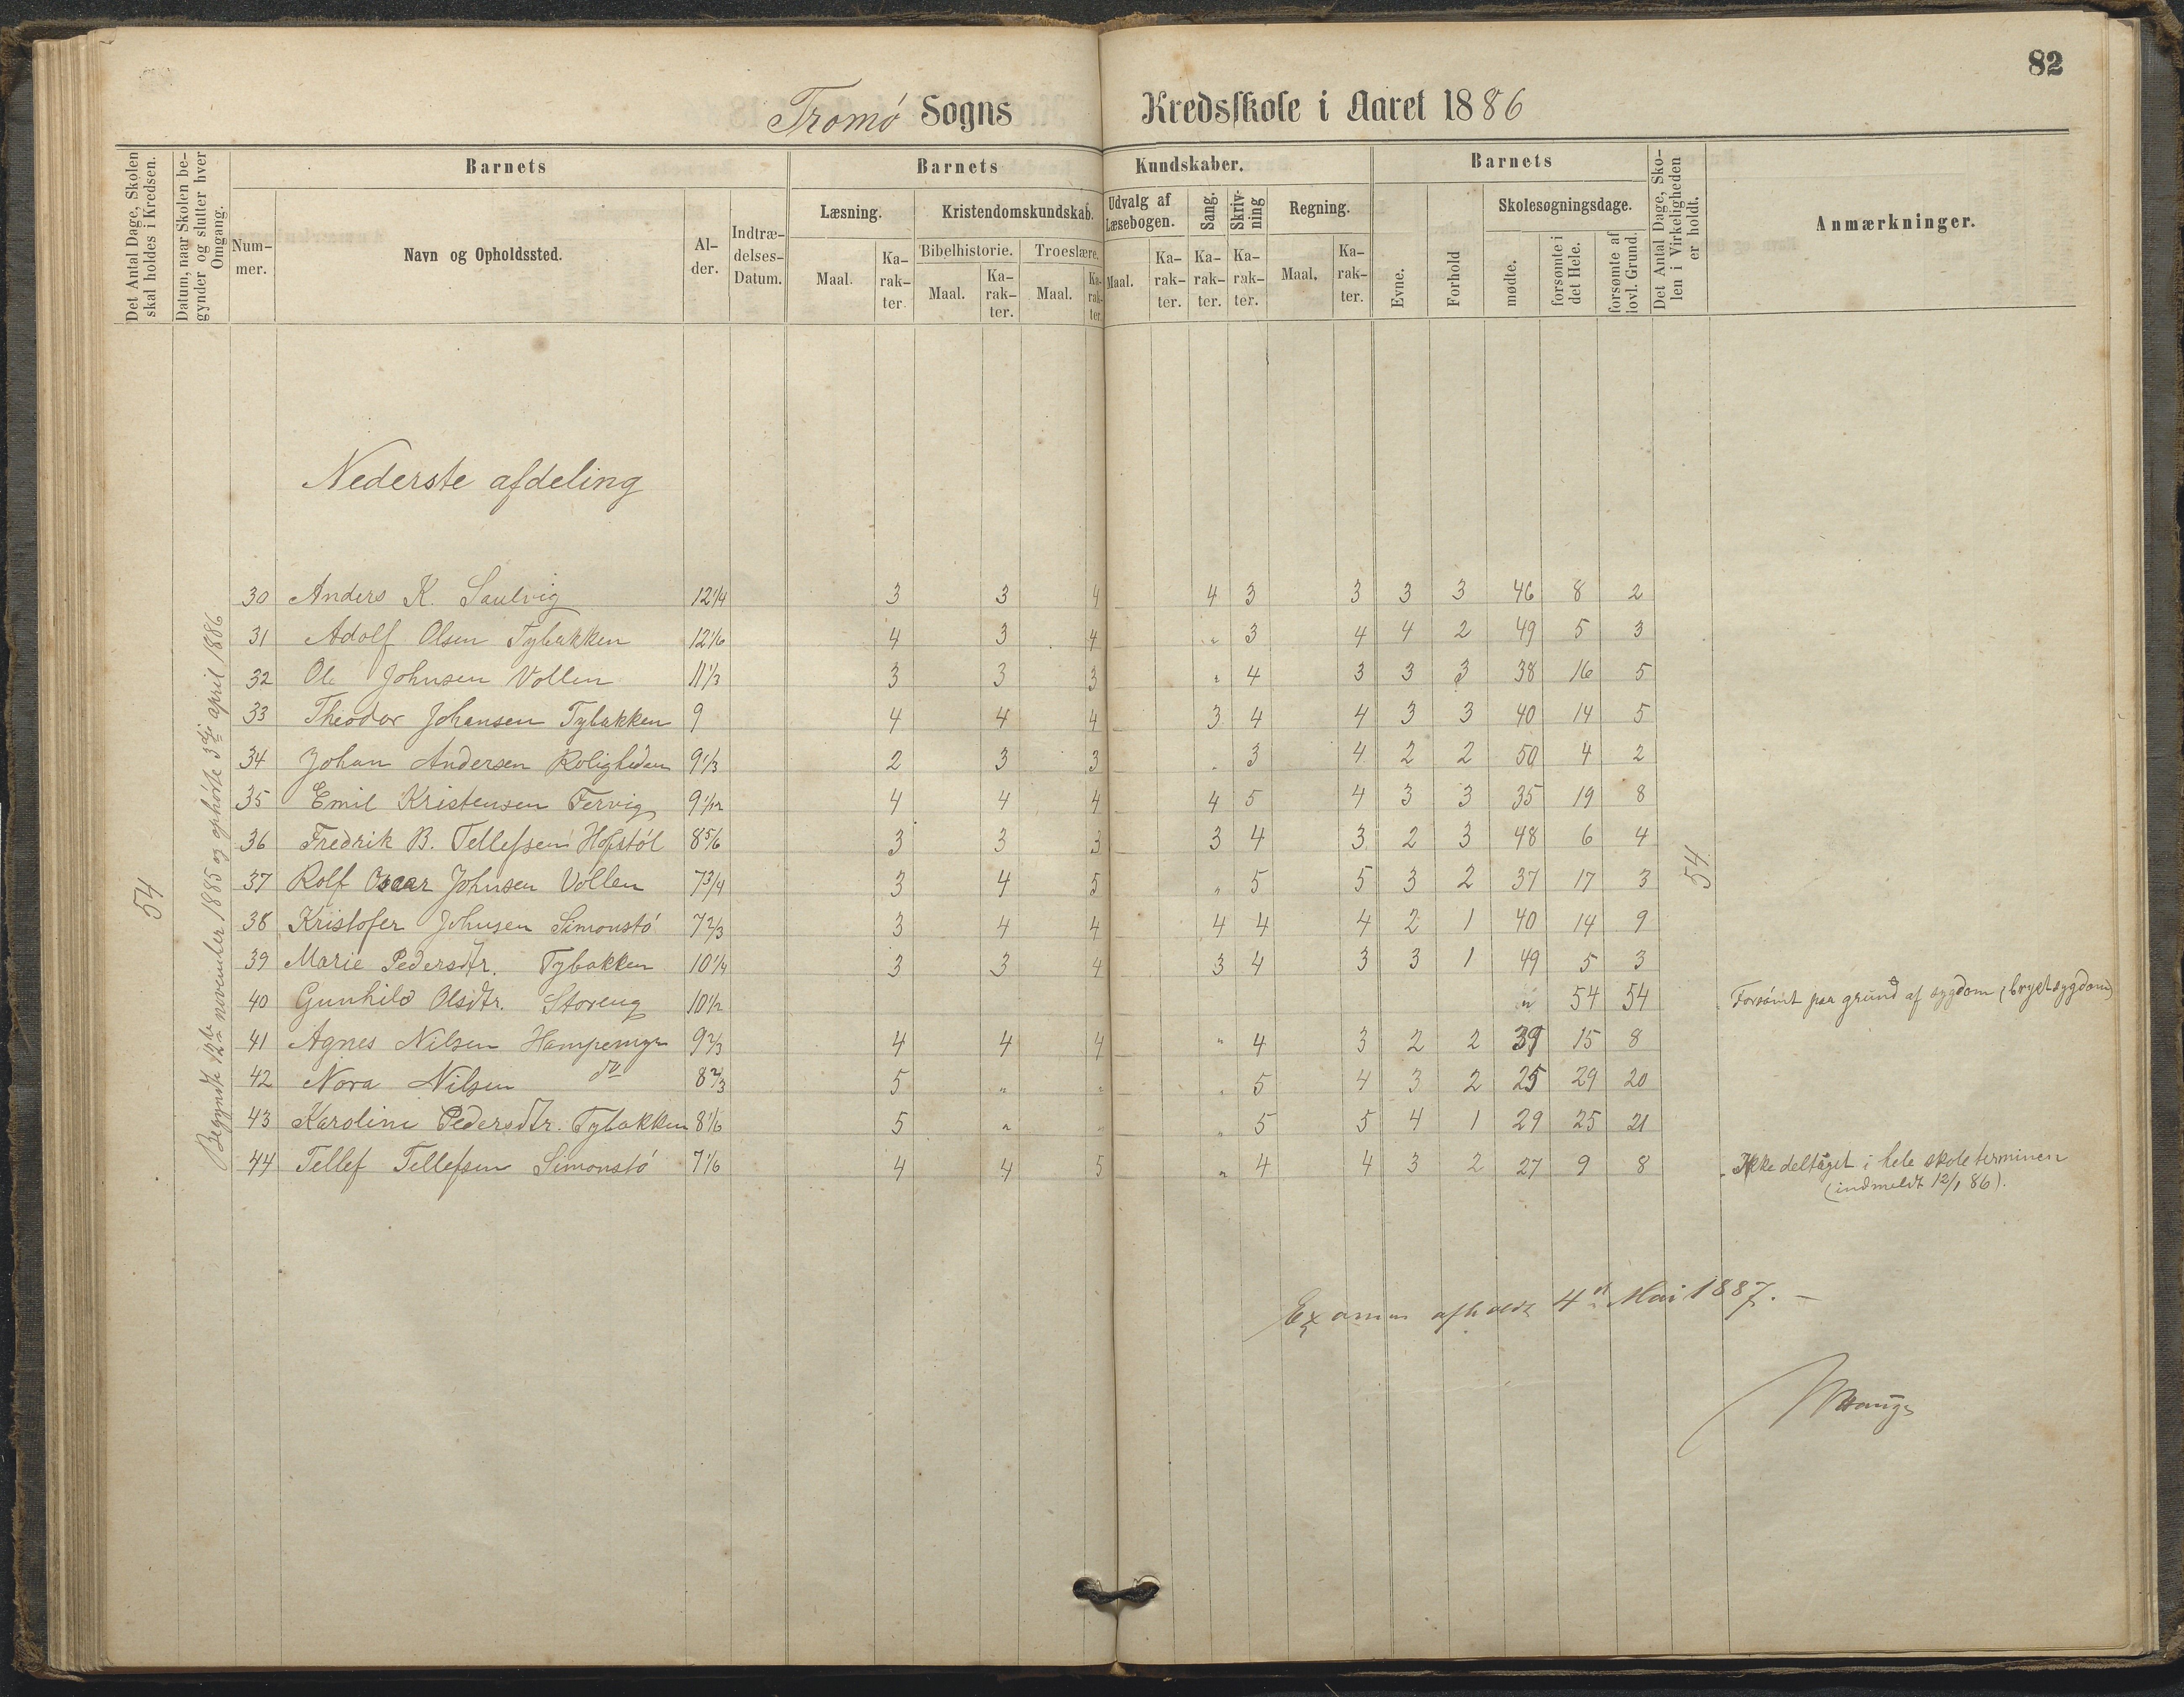 82
Tromø Sogns Kredsskole i Aaret 1886
Det Antal Dage, Skolen skal holdes i Kredsen.
Datum, naar Skolen begynder og slutter hver Omgang.
Barnets
Barnets Kundskaber.
Barnets
Det Antal Dage, Skolen i Virkeligheden er holdt.
Anmærkninger.
Nummer.
Navn og Opholdssted.
Alder.
Indtrædelses-Datum.
Læsning.
Kristendomskundskab.
Udvalg af Læsebogen.
Sang.
Skrivning
Regning.
Evne.
Forhold
Skolesøgningsdage.
Bibelhistorie.
Troeslære.
Maal.
Karakter.
Maal.
Karakter.
Maal.
Karakter.
Maal.
Karakter.
Karakter.
Karakter.
Maal.
Karakter.
mødte.
forsømte i det Hele.
forsømte af lovl. Grund.
Nederste afdeling
54
Begyndt 12te november 1885 og ophørte 3die april 1886
30 Anders K. Saulvig 12 1/4 3 3 4 4 3 3 3 3 46 8 2
31 Adolf Olsen Tybakken 12 1/6 4 3 4 " 3 4 4 2 49 5 3
32 Ole Johnsen Vollen 11 1/3 3 3 3 " 4 3 3 3 38 16 5
33 Theodor Johansen Tybakken 9 4 4 4 3 4 4 3 3 40 14 5
34 Johan Andersen Roligheden 9 1/3 2 3 3 " 3 4 2 2 50 4 2
35 Emil Kristensen Fervig 9 1/12 4 4 4 4 5 4 3 3 35 19 8
36 Fredrik B. Tellefsen Hofstøl 8 5/6 3 3 3 3 4 3 2 3 48 6 4
37 Rolf Oscar Johnsen Vollen 7 3/4 3 4 5 " 5 5 3 2 37 17 3
38 Kristofer Johnsen Simonstø 7 2/3 3 4 4 4 4 4 2 1 40 14 9
39 Marie Pedersdtr. Tybakken 10 1/4 3 3 4 3 4 3 3 1 49 5 3
40 Gunhild Olsdtr. Storeng 10 1/2 " 54 54 Forsømt paa grund af sygdom (brystsygdom)
41 Agnes Nilsen Hampemyr 9 2/3 4 4 4 " 4 3 2 2 39 15 8
42 Nora Nilsen do 8 2/3 5 " " " 5 4 3 2 25 29 20
43 Karoline Pedersdtr. Tybakken 8 1/6 5 " " " 5 5 4 1 29 25 21
44 Tellef Tellefsen Simonstø 7 1/6 4 4 5 " 4 4 3 2 27 9 8 Ikke deltaget i hele skoleterminen
(indmeldt 12/1 86).
54
Examen afholdt 4d Mai 1887.
Hauge